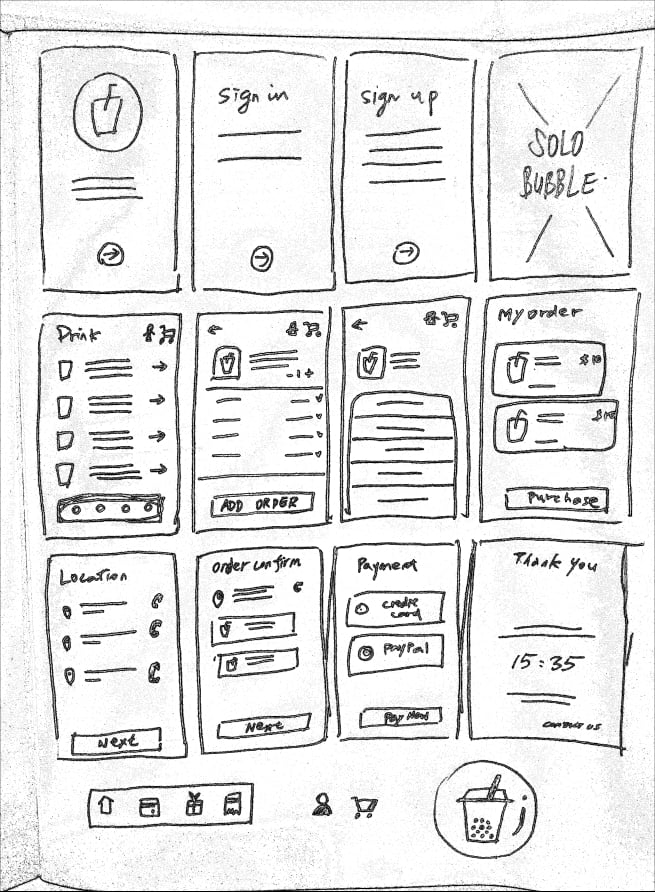 sign in
sign up
SOLO
BUBBLE
Drink
- 1 +
ADD ORDER
My order
$10
Purchase
Location
Next
Order confirm
Next
Payment
credit
card
PayPal
Payment
Thank you
15:35
CONTACT US